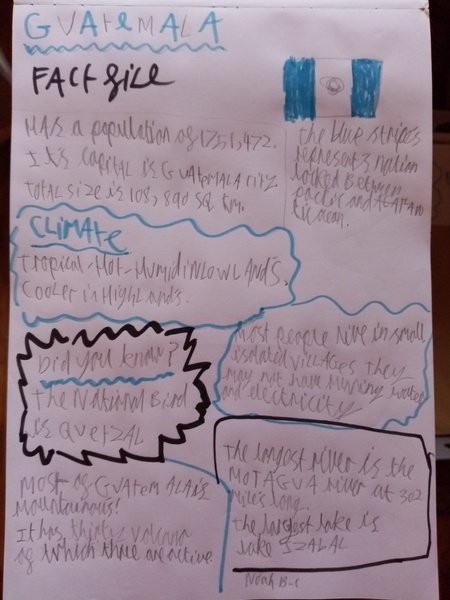 GUATEMALA
FACT file
HAS a population of 1251,472.
It's capital is GUATEMALA city
TOTAL size is 108,890 SQ km.
the blue stripes
represent 3 nation
locked Between
and
ocean.
CLIMATE
tropical-Hot-HumidinLOWLANDS.
cooler in HigHLands.
Did you know?
the National Bird
is QUETZAL
Most people live in small
isolated VillAGES They
may not have running water
and electricity
the longest river is the
MOTAGUA river at 302
miles long.
The largest lake is
lake IZALAL
MOST of GUATEMALA is
Mountainous!
It has thirty volcano
of which three are active
Noah B-C